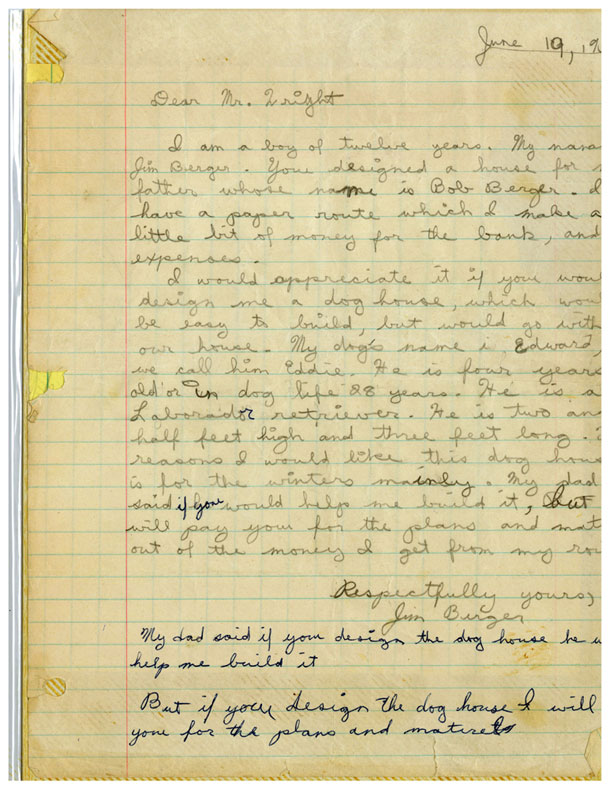 June 19, 19
Dear Mr. Wright
I am a boy of twelve years. My name
Jim Berger. You designed a house for
father whose name is Bob Berger. I
have a paper route which I make a
little bit of money for the bank, and
expenses.
I would appreciate it if you woul
design me a dog house, which woul
be easy to build, but would go with
our house. My dog's name i Edward,
we call him Eddie. He is four years
old or in dog life 28 years. He is a
Laborador retriever. He is two and
half feet high and three feet long.
reasons I would like this dog hous
is for the winters mainly. My dad
said if you would help me build it, but
will pay you for the plans and mat
out of the money I get from my rou
Respectfully yours,
Jim Berger
My dad said if you design the dog house he w
help me build it
But if you design the dog house I will
you for the plans and matirels